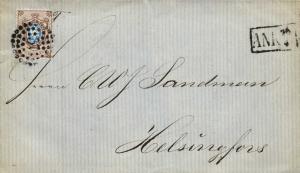 ANK
Herrn C W J Sandman
Helsingfors